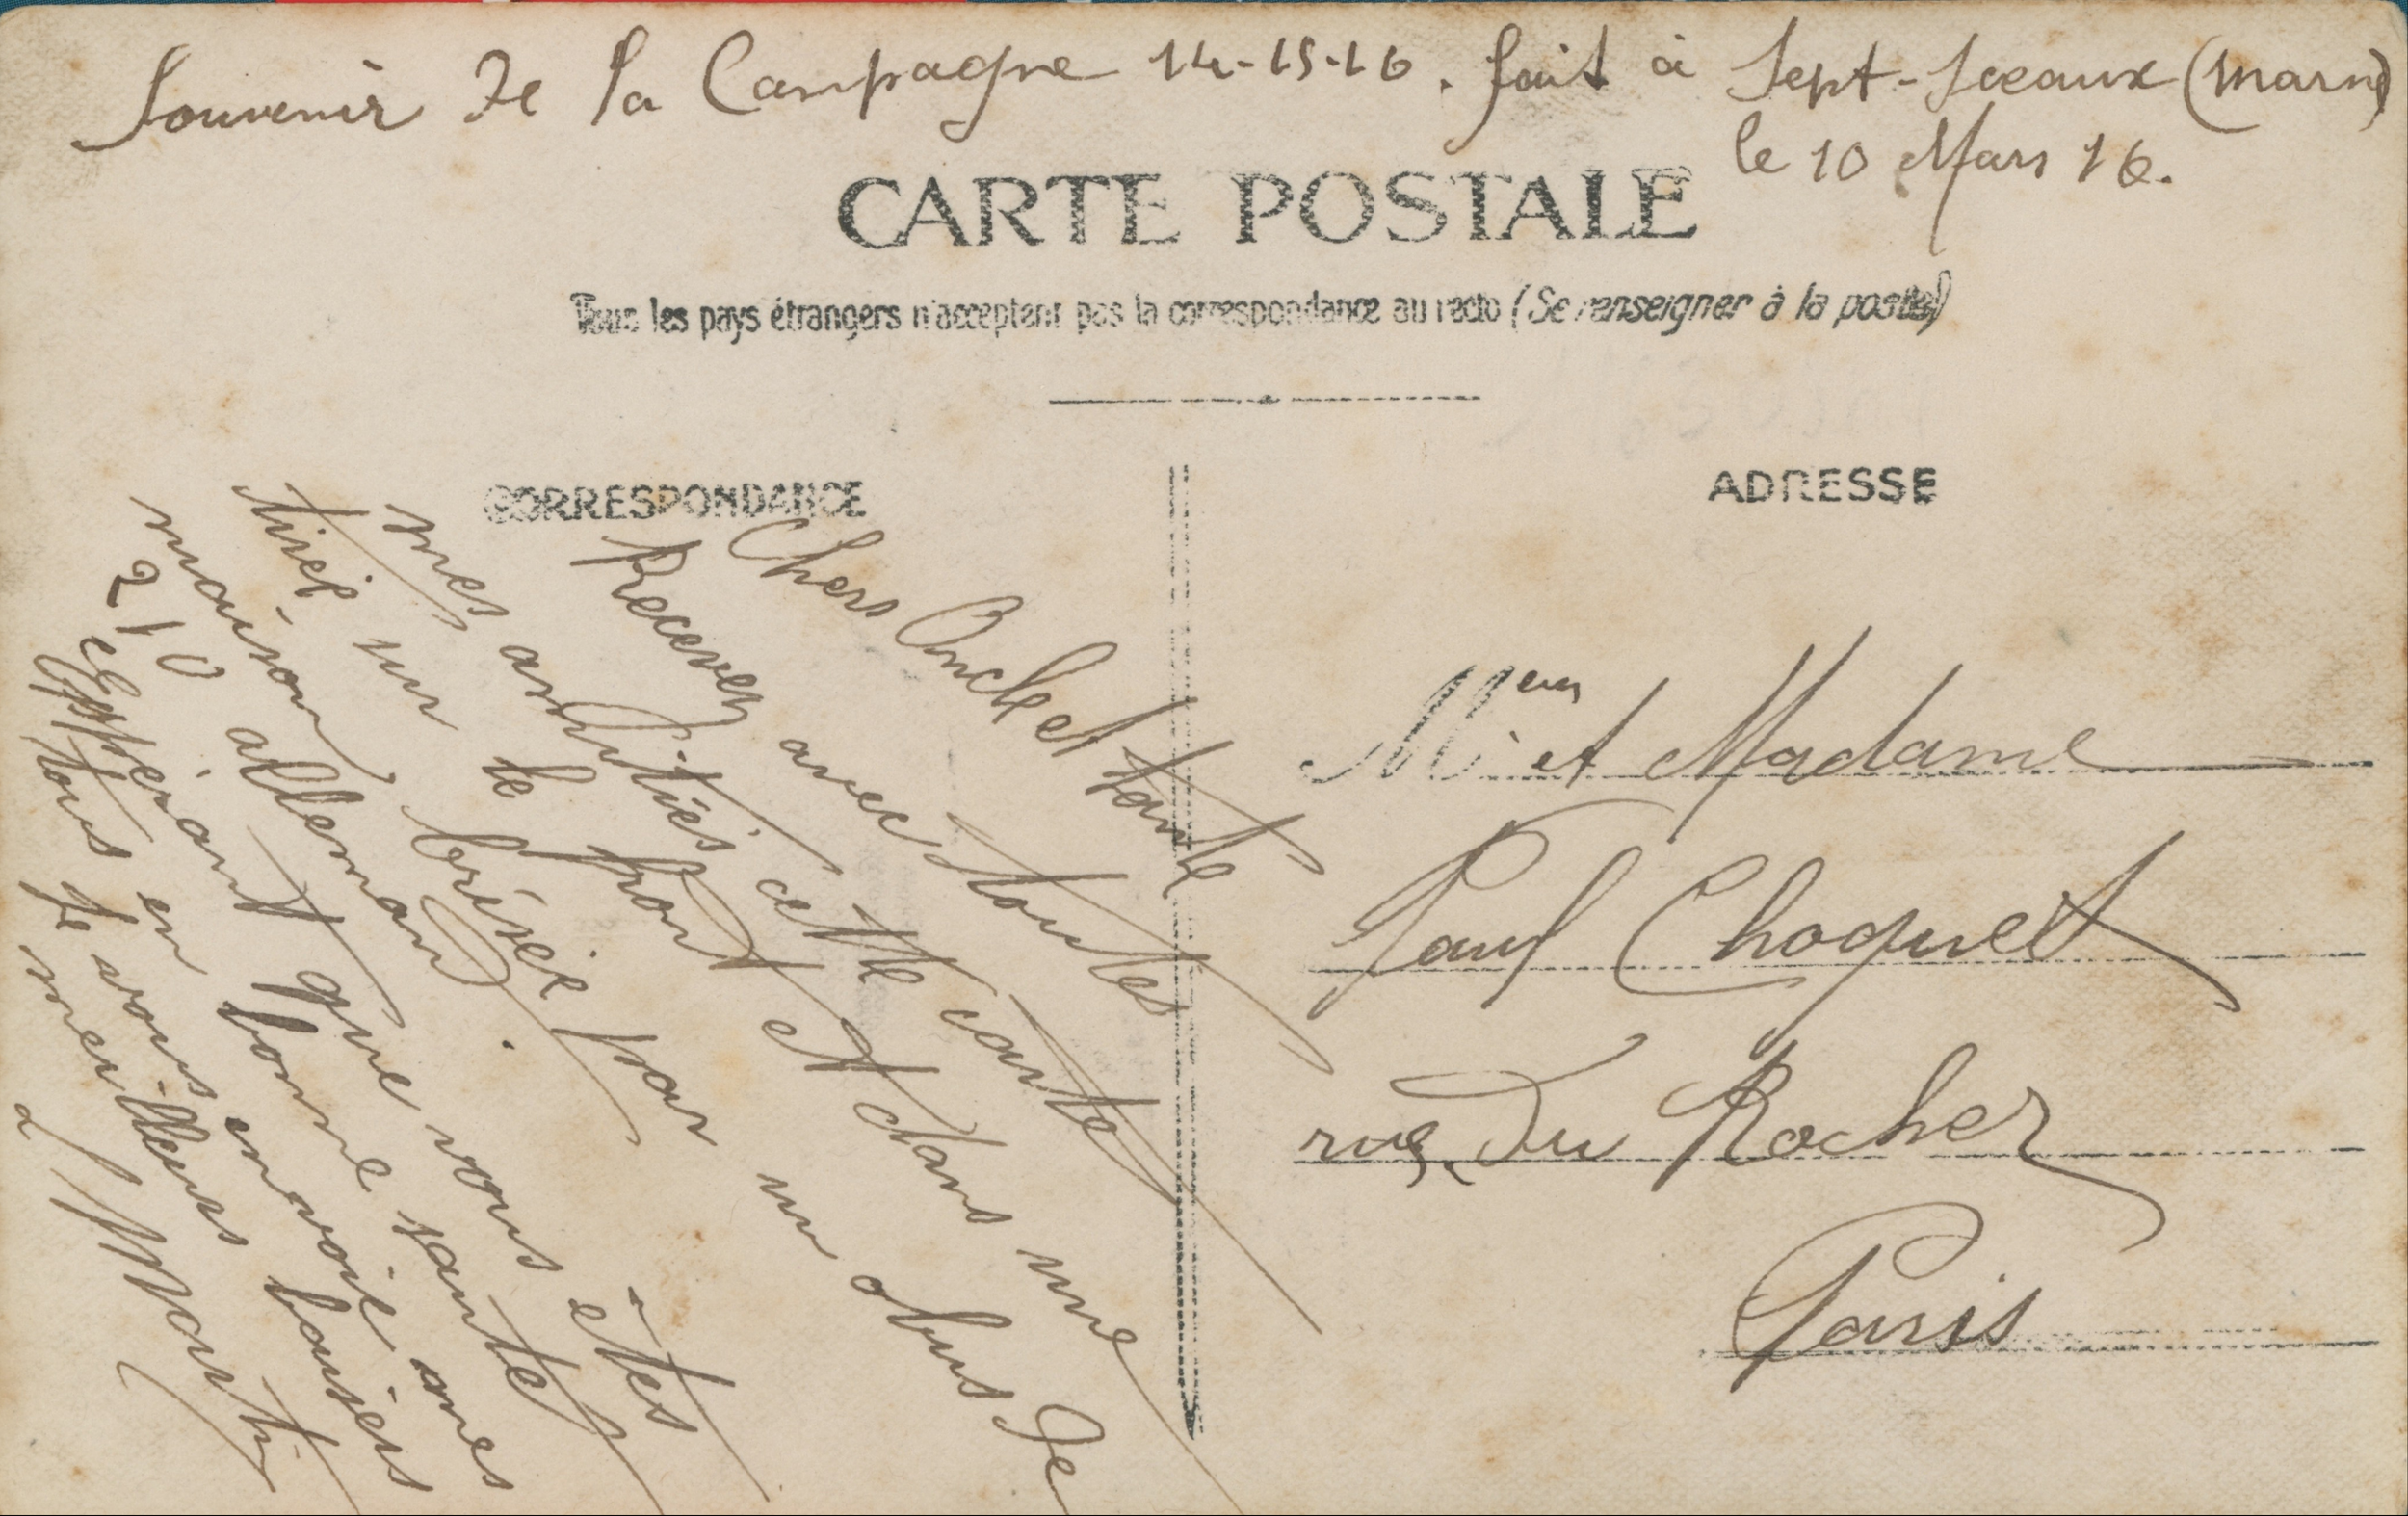 Souvenir de la Campagne 14-15-16. fait à Sept-Sceaux (Marne)
le 10 Mars 16.
CARTE POSTALE
Tous les pays étrangers n'acceptent pas la correspondance au recto (Se renseigner à la poste)
CORRESPONDANCE
Chers Oncle et tante
Recevez avec toutes
mes amitiés cette carte
tirée sur le pont et dans une
maison brisée par un obus de
210 allemand.
Espérant que vous êtes
tous en bonne santé
Je vous envoie mes
meilleurs baisers
ADRESSE
Mr et Madame
Paul Choquet
rue Du Rocher
Paris